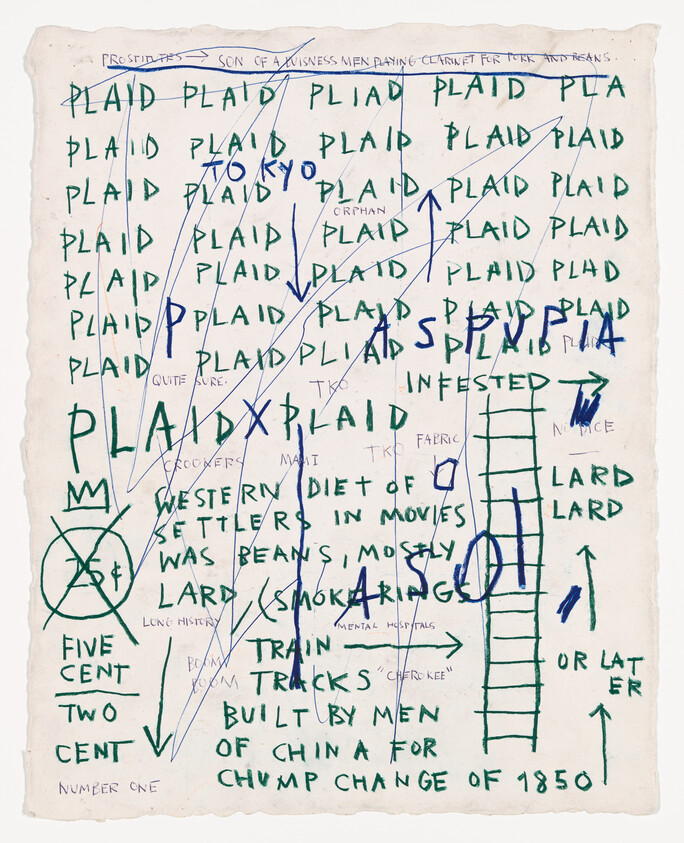 PROSTITUTES → SON OF A BUISNESS MEN PLAYING CLARINET FOR PORK AND BEANS.
PLAID PLAID PLIAD PLAID PLA
PLAID PLAID PLAID PLAID PLAID
TOKYO
PLAID PLAID PLAID PLAID PLAID
ORPHAN
PLAID PLAID PLAID PLAID PLAID
PLAID PLAID PLAID PLAID PLAD
PLAID P PLAID PLAID PLAID PLAID
A S P V P I A
PLAID PLAID PLIAD PLAID PLAID
QUITE SURE. TKO INFESTED →
PLAID X PLAID
NO DICE
CROONERS MAMI TKO FABRIC
WESTERN DIET OF
LARD
SETTLERS IN MOVIES
LARD
25¢
WAS BEANS, MOSTLY
A S O I
LARD (SMOKE RINGS
LONG HISTORY MENTAL HOSPITALS
FIVE
CENT
TRAIN →
BOOM
BOOM
TRACKS "CHEROKEE"
OR LAT
ER
TWO
CENT
BUILT BY MEN
OF CHINA FOR
CHUMP CHANGE OF 1850
NUMBER ONE